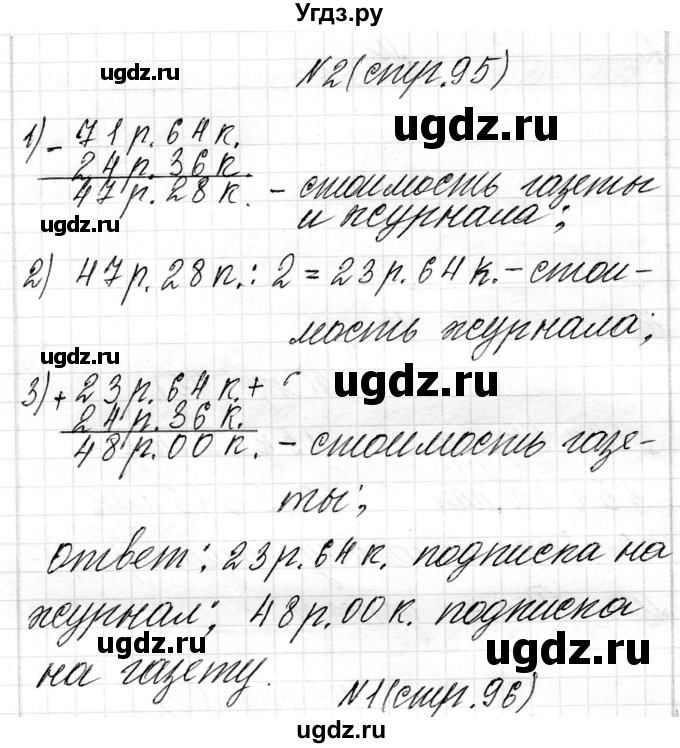 Угдз.ру
ugdz.ru
№2 (стр. 95)
ugdz.ru
1) - 71 р. 64 к.
24 р. 36 к.
47 р. 28 к. - стоимость газеты
ugdz.ru
и журнала;
2) 47 р. 28 к. : 2 = 23 р. 64 к. - стои-
мость журнала;
ugdz.ru
ugdz.ru
3) + 23 р. 64 к. +
24 р. 36 к.
48 р. 00 к. - стоимость газе-
ugdz.ru
ты;
ugdz.ru
Ответ: 23 р. 64 к. подписка на
журнал; 48 р. 00 к. подписка
ugdz.ru
ugdz.ru
на газету.
№1 (стр. 96)
ugdz.ru
ugdz.ru